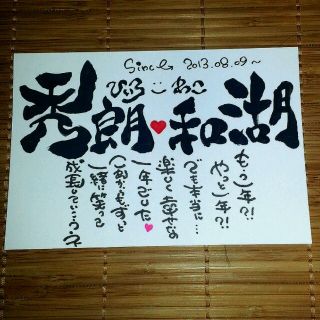 Since 2013.08.09~
ひでろう わこ
秀朗♥和湖
もう一年?!
やっと一年?!
でも本当に…
楽しく幸せな
一年でした♥
これからもずっと
一緒に笑って
成長していこうネ